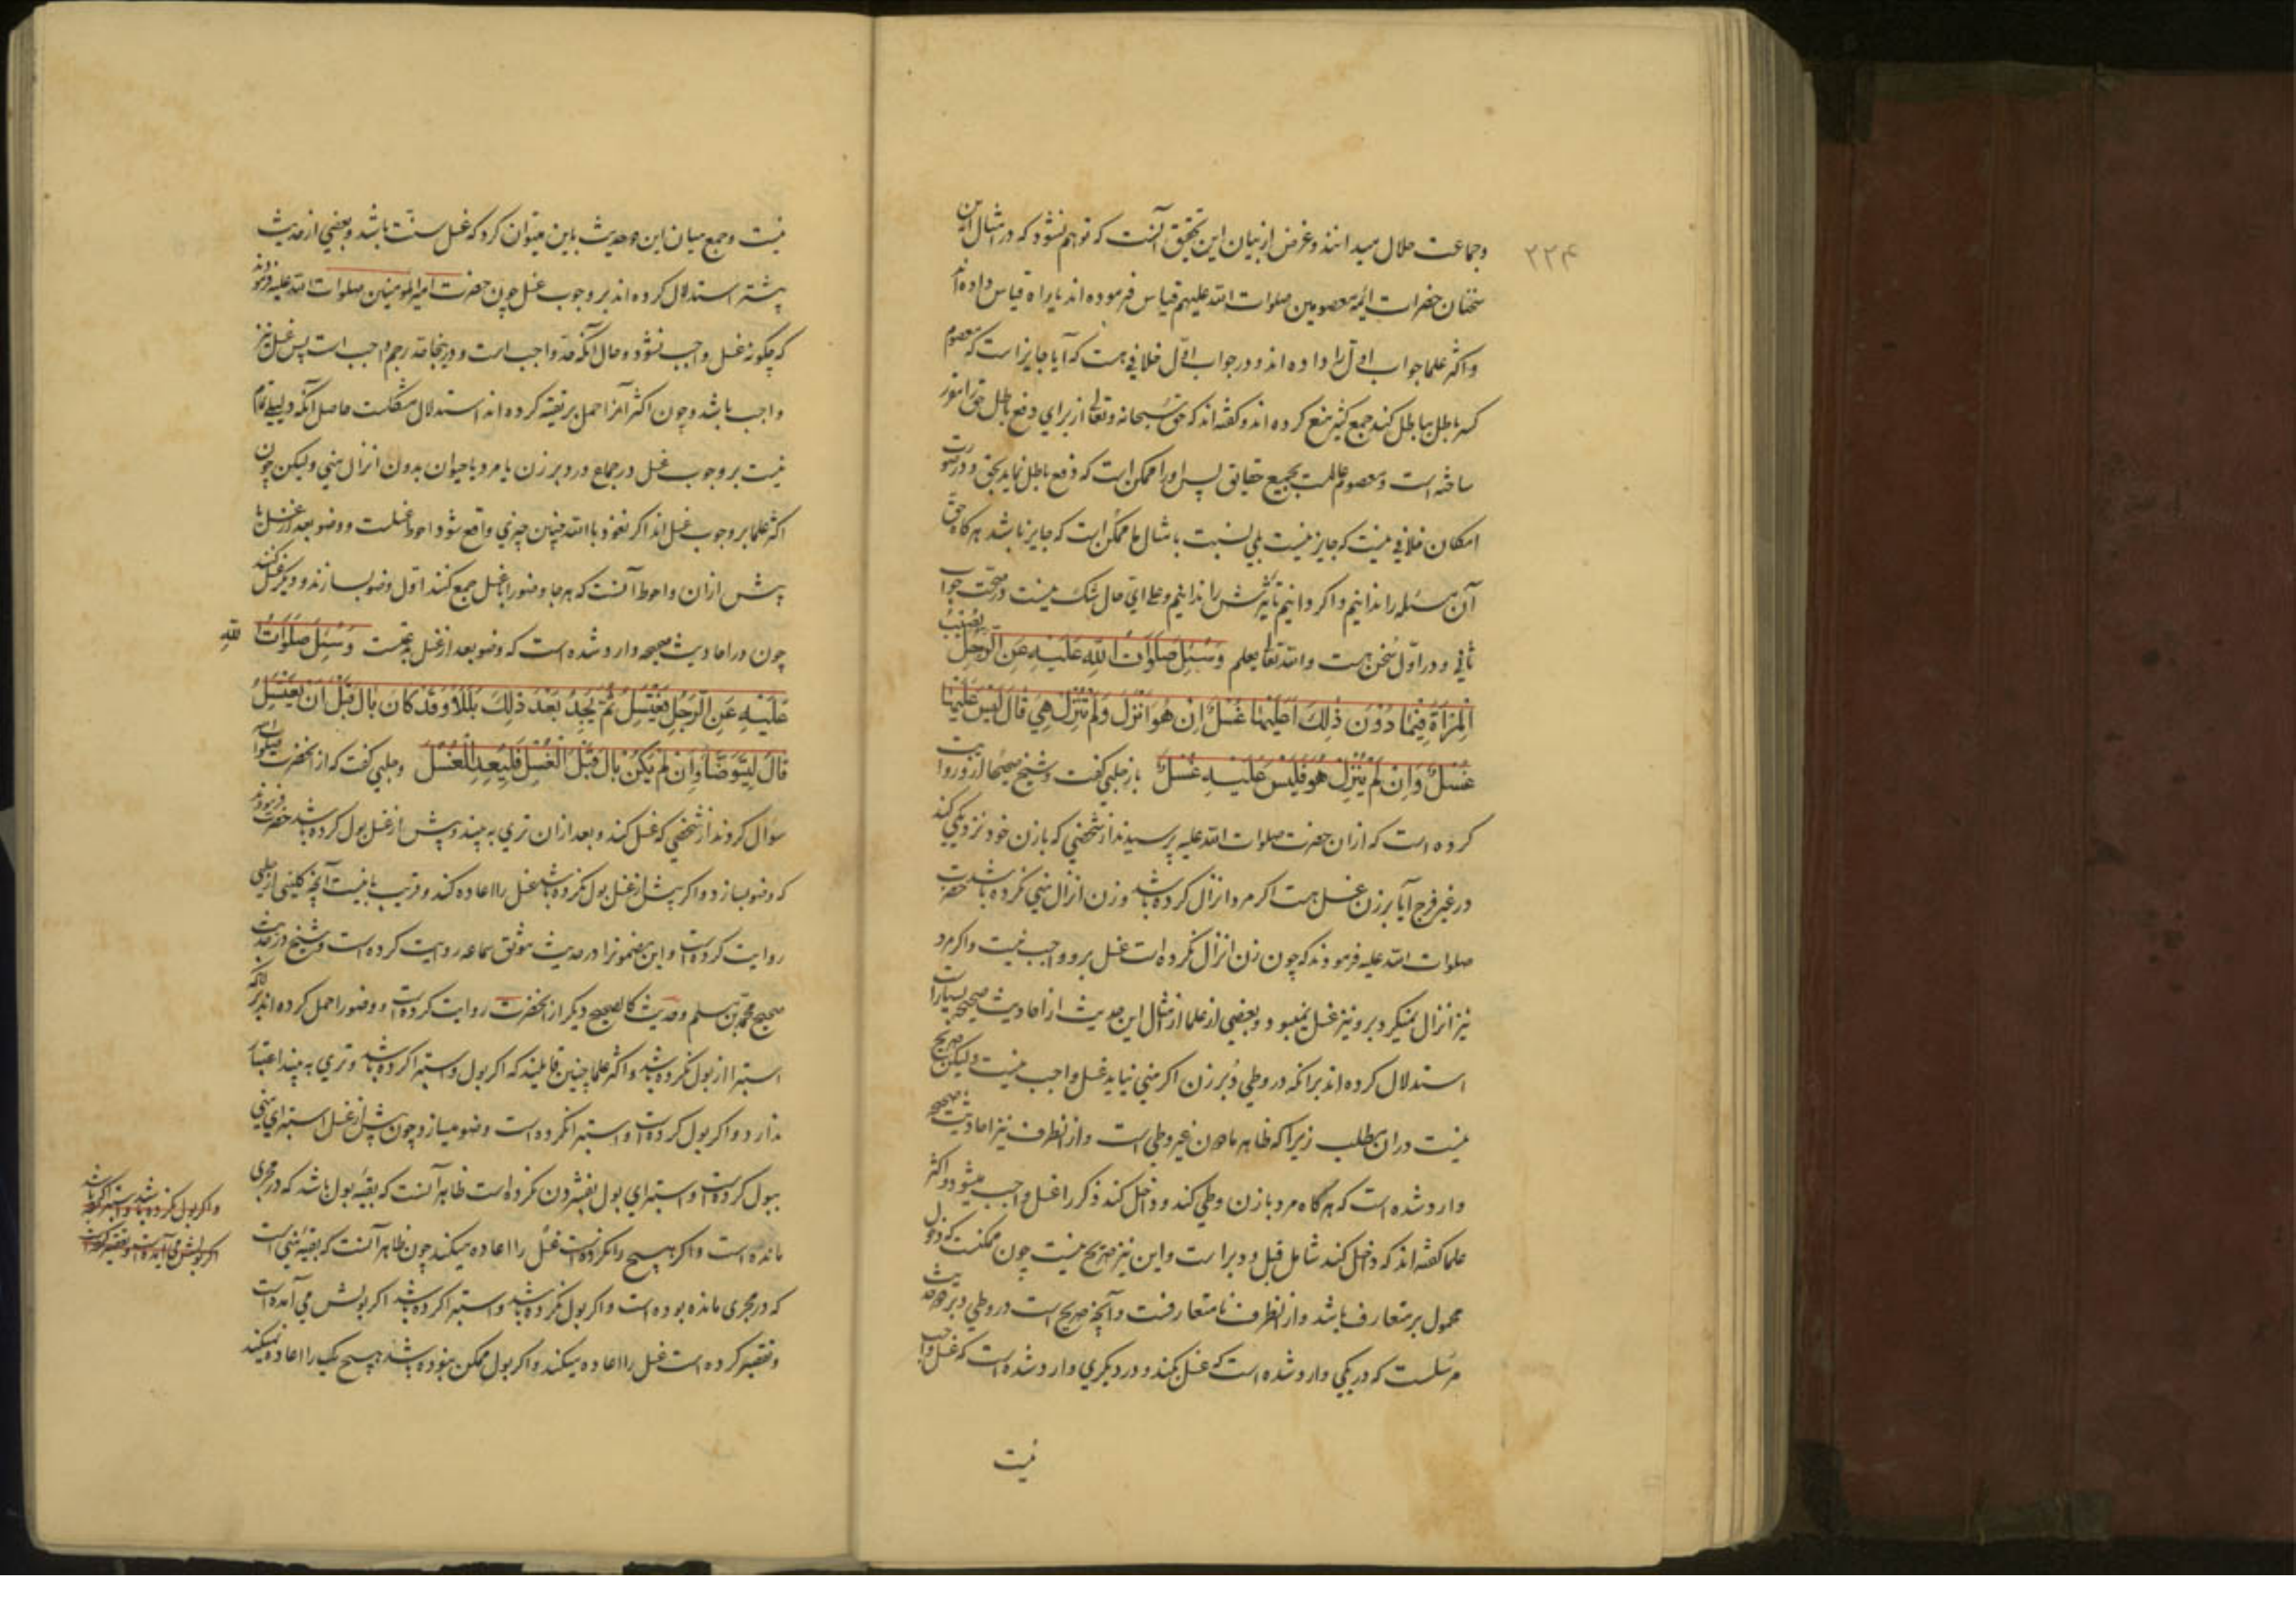 ۲۲۴
وجماعت حلال میدانند وغرض از بیان این تحقیق آنست که توهم نشود که در امثال این
سخنان حضرات ائمه معصومین صلوات الله علیهم قیاس فرموده اند یا راه قیاس داده اند
واکثر علما جواب اول را داده اند ودر جواب اول خلافی هست که آیا جایز است که معصوم
کسر باطل بباطل کند جمع کثیر منع کرده اند وکفته اند که حق سبحانه وتعالی از برای دفع باطل حق را مقرر
ساخته است ومعصوم عالمست بجمیع حقایق پس او را ممکن است که دفع باطل نماید بحق ودر صورت
امکان خلافی نیست که جایز نیست بلی نسبت بامثال ما ممکن است که جایز باشد هرکاه حق
آن مسئله را ندانیم واکر دانیم تاثیرش را ندانیم وعلی ای حال شک نیست در صحت جواب
ثانی ودر اول سخن هست والله تعالی یعلم وَسُئِلَ صَلَوَاتُ اللهِ عَلَیْهِ عَنِ الرَّجُلِ یُصِیبُ
الْمَرْأَةَ فِیمَا دُوْنَ ذٰلِکَ اَعَلَیْهَا غُسْلٌ اِنْ هُوَ اَنْزَلَ وَلَمْ تُنْزِلْ هِیَ قَالَ لَیْسَ عَلَیْهَا
غُسْلٌ وَاِنْ لَمْ یُنْزِلْ هُوَ فَلَیْسَ عَلَیْهِ غُسْلٌ باز حلبی کفت وشیخ صحیحا ازو روایت
کرده است که ازان حضرت صلوات الله علیه پرسیدند از شخصی که با زن خود نزدیکی کند
در غیر فرج آیا بر زن غسل هست اکر مرد انزال کرده باشد وزن انزال منی نکرده باشد حضرت
صلوات الله علیه فرمودند که چون زن انزال نکرده است غسل برو واجب نیست واکر مرد
نیز انزال نمیکرد برو نیز غسل نمیبود وبعضی از علما از مثال این حدیث از احادیث صحیحه بسیار است
استدلال کرده اند برانکه در وطی دُبر زن اکر منی نیاید غسل واجب نیست ولیکن صریح
نیست دران مطلب زیرا که ظاهر مادون غیر وطی است وازانطرف نیز احادیث صحیحه
وارد شده است که هر کاه مرد با زن وطی کند وداخل کند ذکر را غسل واجب میشود واکثر
علما کفته اند که داخل کند شامل قبل ودبر است واین نیز صریح نیست چون ممکنست که دخول
محمول بر متعارف باشد وازانطرف نامتعارفست وآنچه صریح است در وطی دبر دو حدیث
مرسلست که در یکی وارد شده است که غسل نمیکند ودر دیکری وارد شده است که غسل واجب
نیست
نیست وجمع میان این دو حدیث باین میتوان کرد که غسل سنّت باشد وبعضی از حدیث
پیشتر استدلال کرده اند بر وجوب غسل چون حضرت امیر المومنین صلوات الله علیه فرمودند
که چکونه غسل واجب نشود وحال آنکه حد واجب است ودرینجا حد رجم واجب است پس غسل نیز
واجب باشد وچون اکثر آنرا حمل بر تقیه کرده اند استدلال مشکلست حاصل آنکه دلیلی تمام
نیست بر وجوب غسل در جماع در دبر زن یا مرد یا حیوان بدون انزال منی ولیکن چون
اکثر علما بر وجوب غسل اند اکر نعوذ بالله چنین چیزی واقع شود احوط غسلست ووضو بعد از غسل یا
پیش ازان واحوط آنست که هرجا وضو را با غسل جمع کنند اول وضو بسازند ودیکر غسل کنند
چون در احادیث صحیحه وارد شده است که وضو بعد از غسل بدعتست وَسُئِلَ صَلَوَاتُ اللهِ
عَلَیْهِ عَنِ الرَّجُلِ یَغْتَسِلُ ثُمَّ یَجِدُ بَعْدَ ذٰلِکَ بَلَلًا وَقَدْ کَانَ بَالَ قَبْلَ اَنْ یَغْتَسِلَ
قَالَ لِیَتَوَضَّأْ وَاِنْ لَمْ یَکُنْ بَالَ قَبْلَ الْغُسْلِ فَلْیُعِدِ الْغُسْلَ وحلبی کفت که از انحضرت صلوات الله
سؤال کردند از شخصی که غسل کند وبعد ازان تری به بیند وپیش از غسل بول کرده باشد حضرت فرمودند
که وضو بسازد واکر پیش از غسل بول نکرده باشد غسل را اعاده کند وقریب باینست آنچه کلینی از حلبی
روایت کرده است واین مضمونرا در حدیث موثق سماعه روایت کرده است وشیخ در حدیث
صحیح محمد بن مسلم وحدیث کالصحیح دیکر از انحضرت روایت کرده است ووضو را حمل کرده اند بر آنکه
استبرا از بول نکرده باشد واکثر علما چنین قایلیند که اکر بول واستبرا کرده باشد وتری به بیند اعتبار
ندارد واکر بول کرده است واستبرا نکرده است وضو میسازد چون پیش از غسل استبرای منی
ببول کرده است واستبرای بول بفشردن نکرده است ظاهر آنست که بقیهٔ بول باشد که در مجری
مانده است واکر هیچ را نکرده است غسل را اعاده میکند چون ظاهر آنست که بقیهٔ منی است
که در مجری مانده بوده است واکر بول نکرده باشد واستبرا کرده باشد اکر بولش می آمده است
وتقصیر کرده است غسل را اعاده میکند واکر بول ممکن نبوده باشد هیچ یک را اعاده نمیکند
واکر بول نکرده باشد واستبرا کرده باشد
اکر بولش می آمده است وتقصیر کرده است